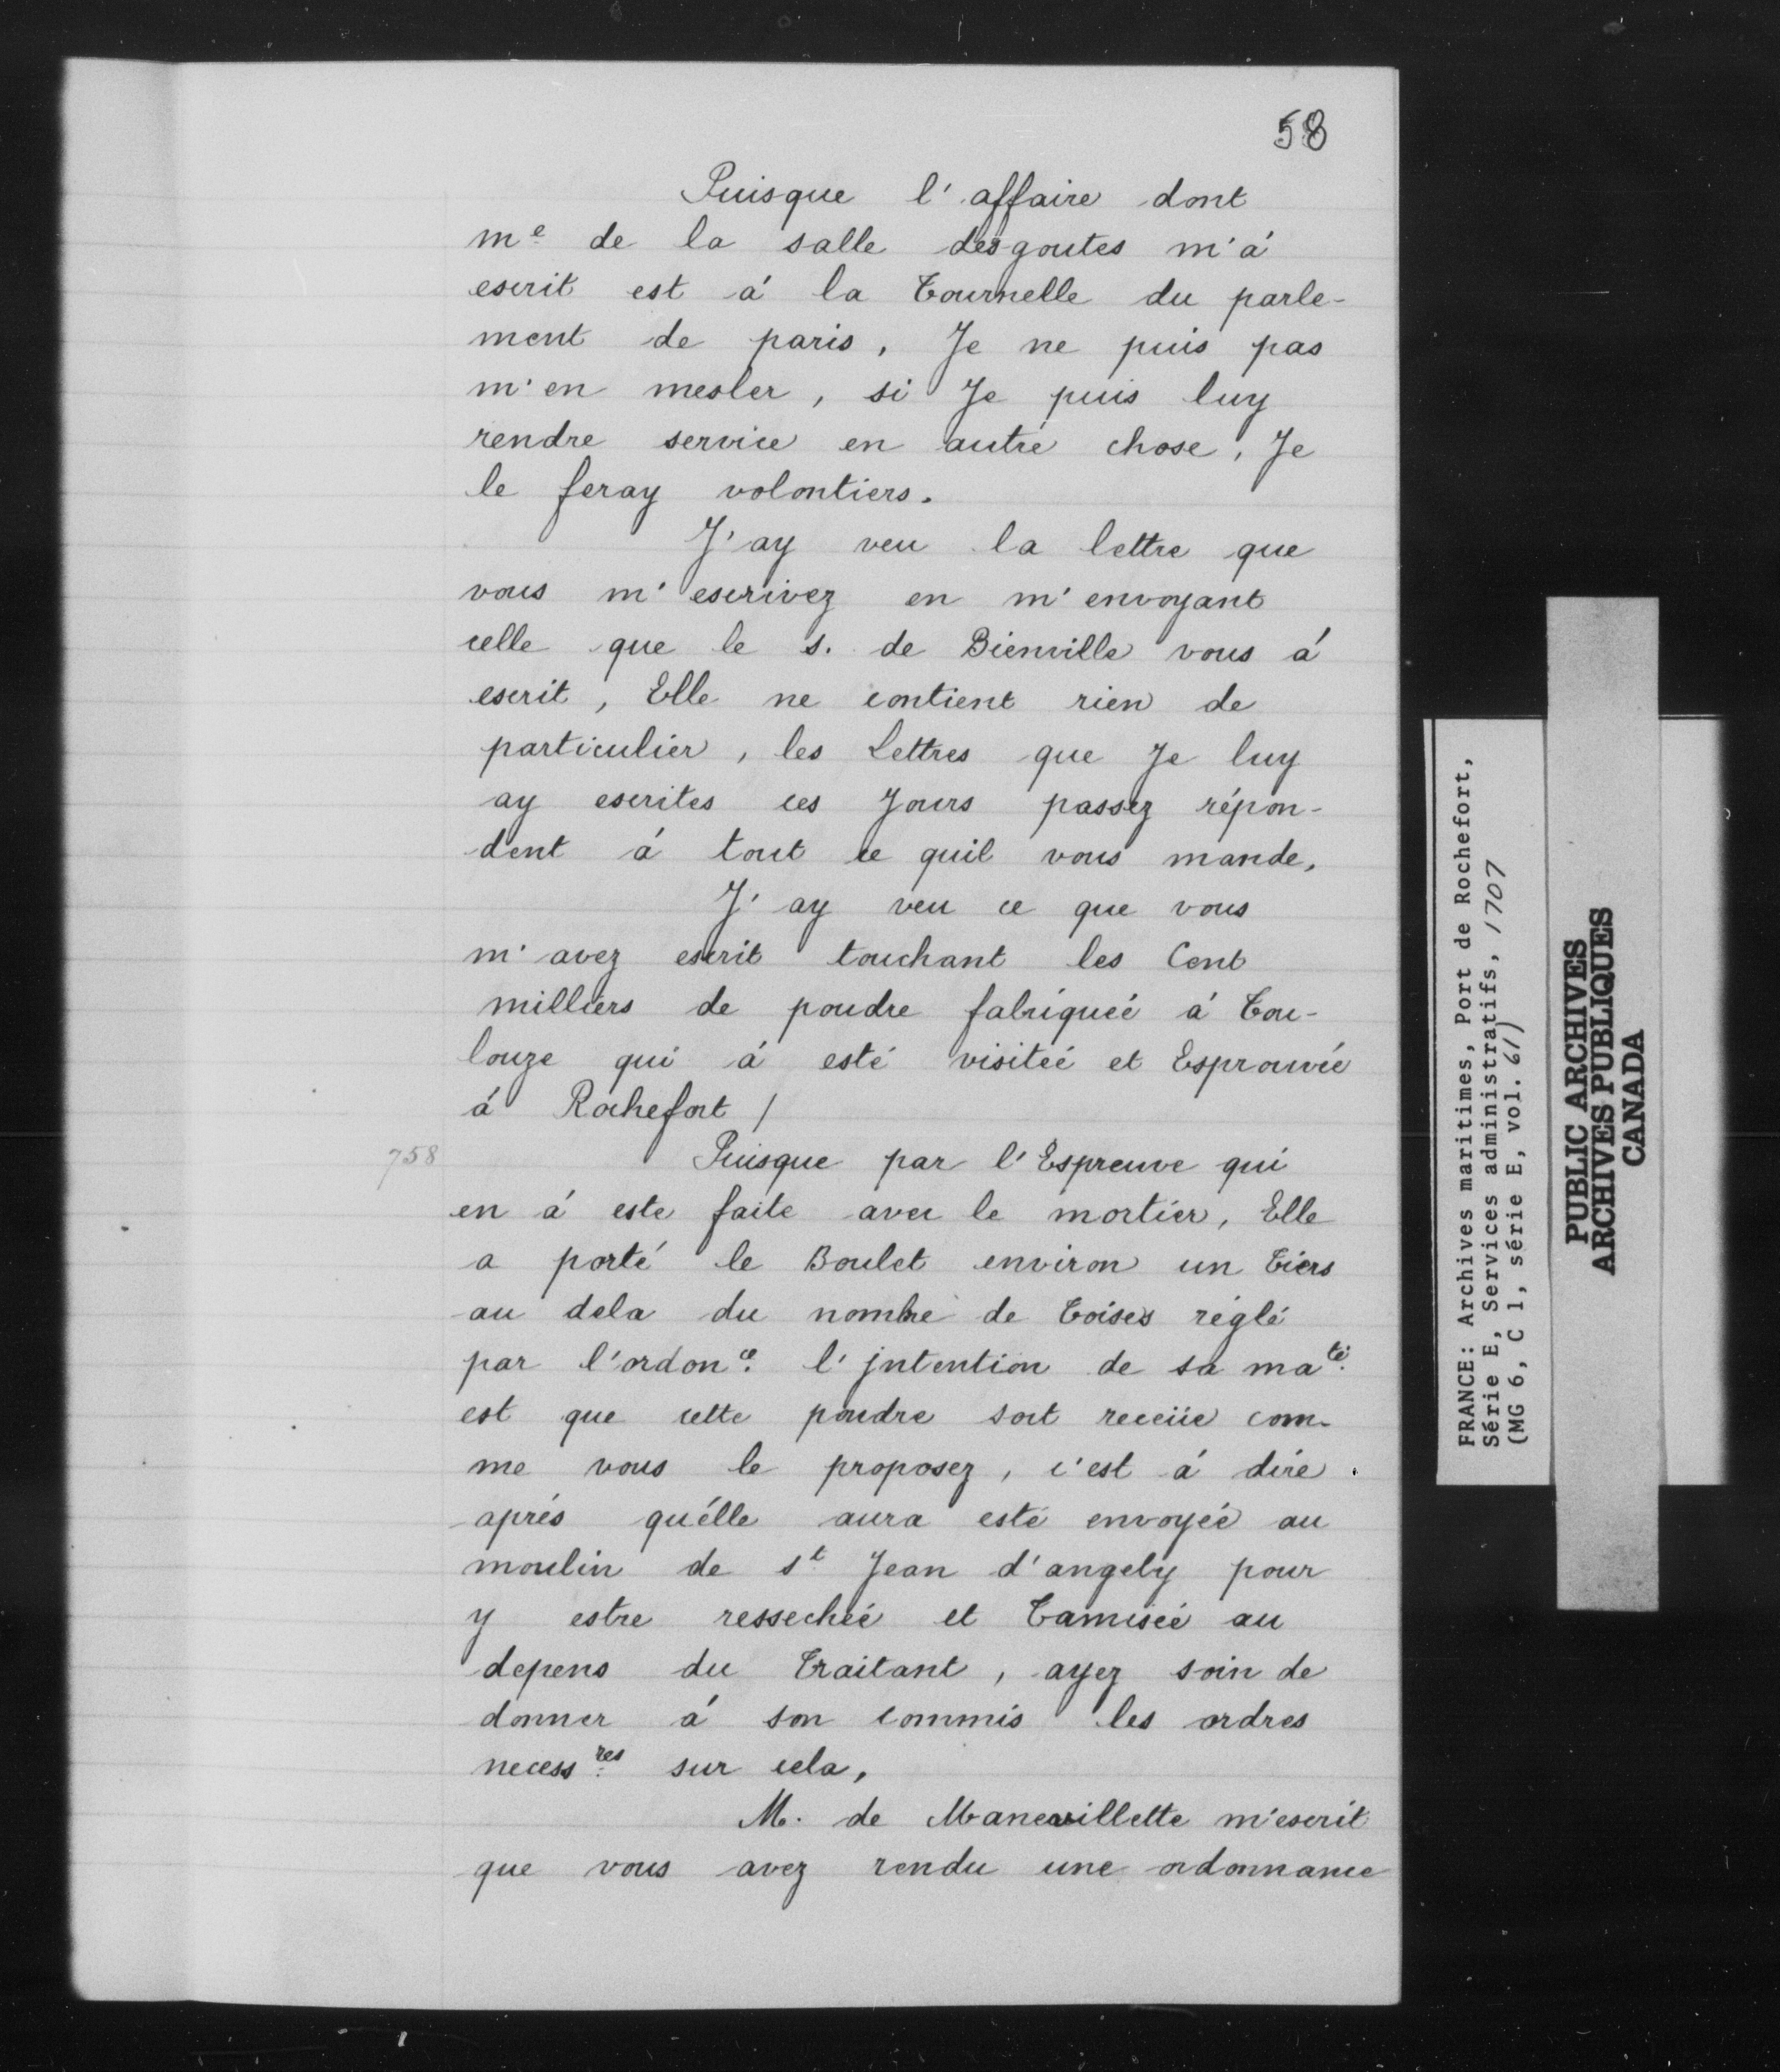 58
Puisque l'affaire dont
me de la salle desgoutes m'á
escrit est á la Tournelle du parle-
ment de paris, Je ne puis pas
m'en mesler, si Je puis luy
rendre service en autre chose, Je
le feray volontiers.
J'ay veu la lettre que
vous m'escrivez en m'envoyant
celle que le s. de Bienville vous á
escrit, Elle ne contient rien de
particulier, les Lettres que Je luy
ay escrites ces Jours passez répon-
dent á tout ce quil vous mande,
J'ay veu ce que vous
m'avez escrit touchant les Cent
milliers de poudre fabriqueé á Tou-
louze qui á esté visiteé et Esprouvée
á Rochefort /
758
Puisque par l'Espreuve qui
en á este faite avec le mortier, Elle
a porté le Boulet environ un Tiers
au dela du nombre de Toises réglé
par l'ordonce. l'jntention de sa maté.
est que cette poudre soit receüe com-
me vous le proposez, c'est á dire
aprés qu'élle aura esté envoyeé au
moulin de st Jean d'angely pour
y estre ressecheé et Tamiseé au
depens du Traitant, ayez soin de
donner á son commis les ordres
necessres. sur cela,
M. de Manevillette m'escrit
que vous avez rendu une ordonnance
FRANCE: Archives maritimes, Port de Rochefort,
Série E, Services administratifs, 1707
(MG 6, C 1, série E, vol. 611)
PUBLIC ARCHIVES
ARCHIVES PUBLIQUES
CANADA